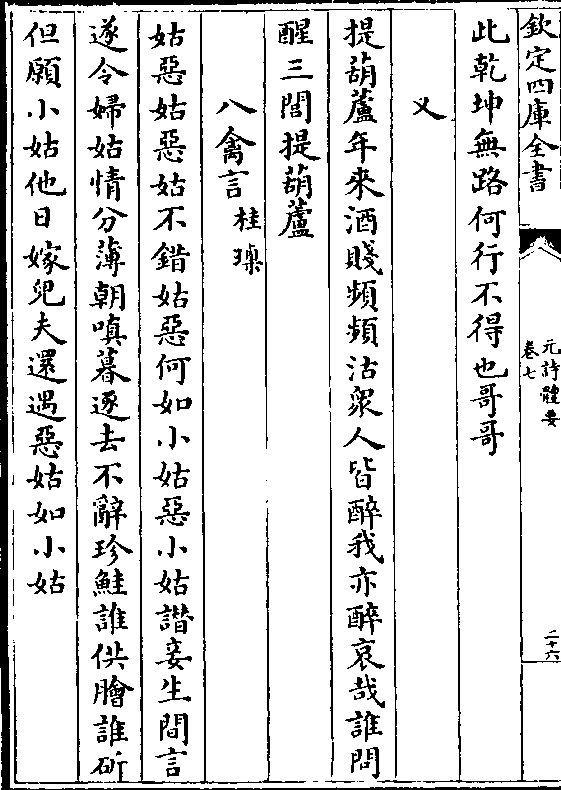 欽定四庫全書
元詩體要
卷七
二十六
此乾坤無路何行不得也哥哥
又
提葫蘆年來酒賤頻頻沽衆人皆醉我亦醉哀哉誰問
醒三閭提葫蘆
八禽言
桂瓊
姑惡姑惡姑不錯姑惡何如小姑惡小姑譖妾生間言
遂令婦姑情分薄朝嗔暮逐去不辭珍鮭誰供膾誰斫
但願小姑他日嫁兒夫還遇惡姑如小姑